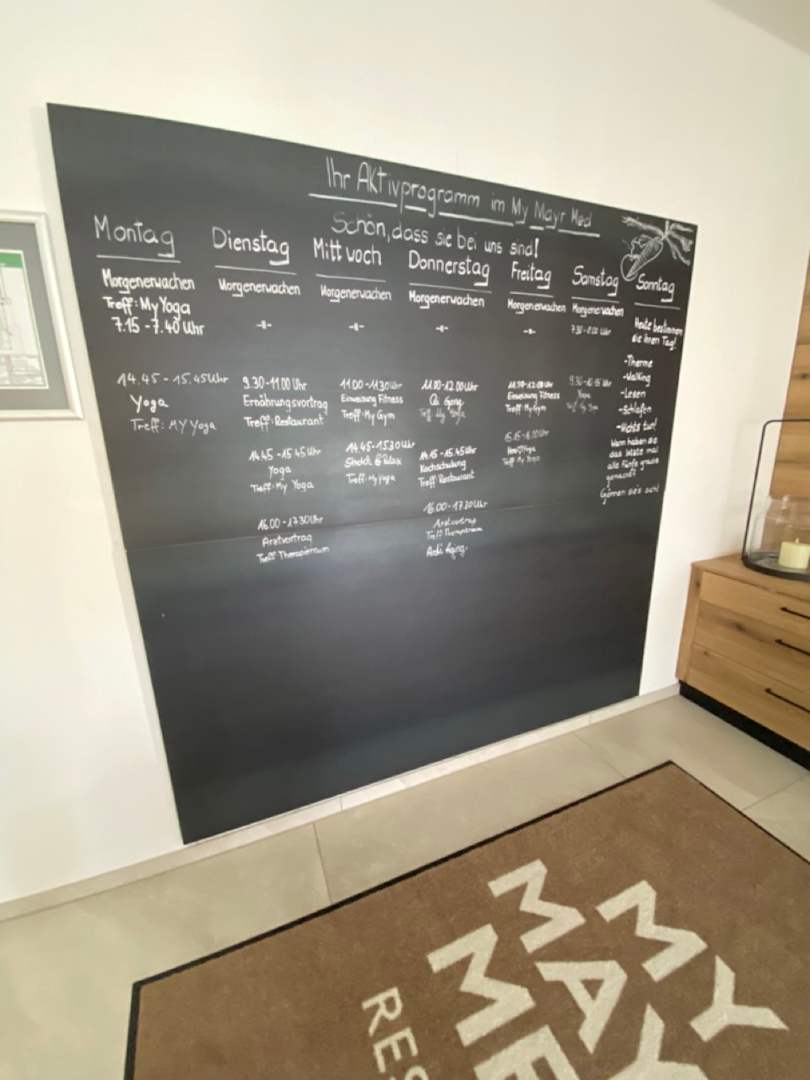 Ihr Aktivprogramm im My Mayr Med
Schön, dass sie bei uns sind!
Montag
Morgenerwachen
Treff: My Yoga
7.15 - 7.40 Uhr
14.45 - 15.45 Uhr
Yoga
Treff: MY Yoga
Dienstag
Morgenerwachen
-"-
9.30-11.00 Uhr
Ernährungsvortrag
Treff: Restaurant
14.45 - 15.45 Uhr
Yoga
Treff: My Yoga
16.00 - 17.30 Uhr
Arztvortrag
Treff Therapieraum
Mittwoch
Morgenerwachen
-"-
11.00-11.30 Uhr
Einweisung Fitness
Treff: My Gym
14.45-15.30 Uhr
Stretch & Relax
Treff: My Yoga
Donnerstag
Morgenerwachen
-"-
11.00-12.00 Uhr
Qi Gong
Treff My Yoga
14.15-15.45 Uhr
Kochschulung
Treff Restaurant
16.00 - 17.30 Uhr
Arztvortrag
Treff Therapieraum
Anti Aging
Freitag
Morgenerwachen
-"-
Einweisung Fitness
Treff: My Gym
Treff My Yoga
Samstag
Morgenerwachen
Yoga
Treff My Yoga
Sonntag
Heute bestimmen
sie ihren Tag!
-Therme
-Walking
-Lesen
-Schlafen
-Nichts tun!
Wann haben sie
das letzte mal
alle Fünfe grade
gemacht?
Gönnen sie's sich!
MY
MAY
ME
RES